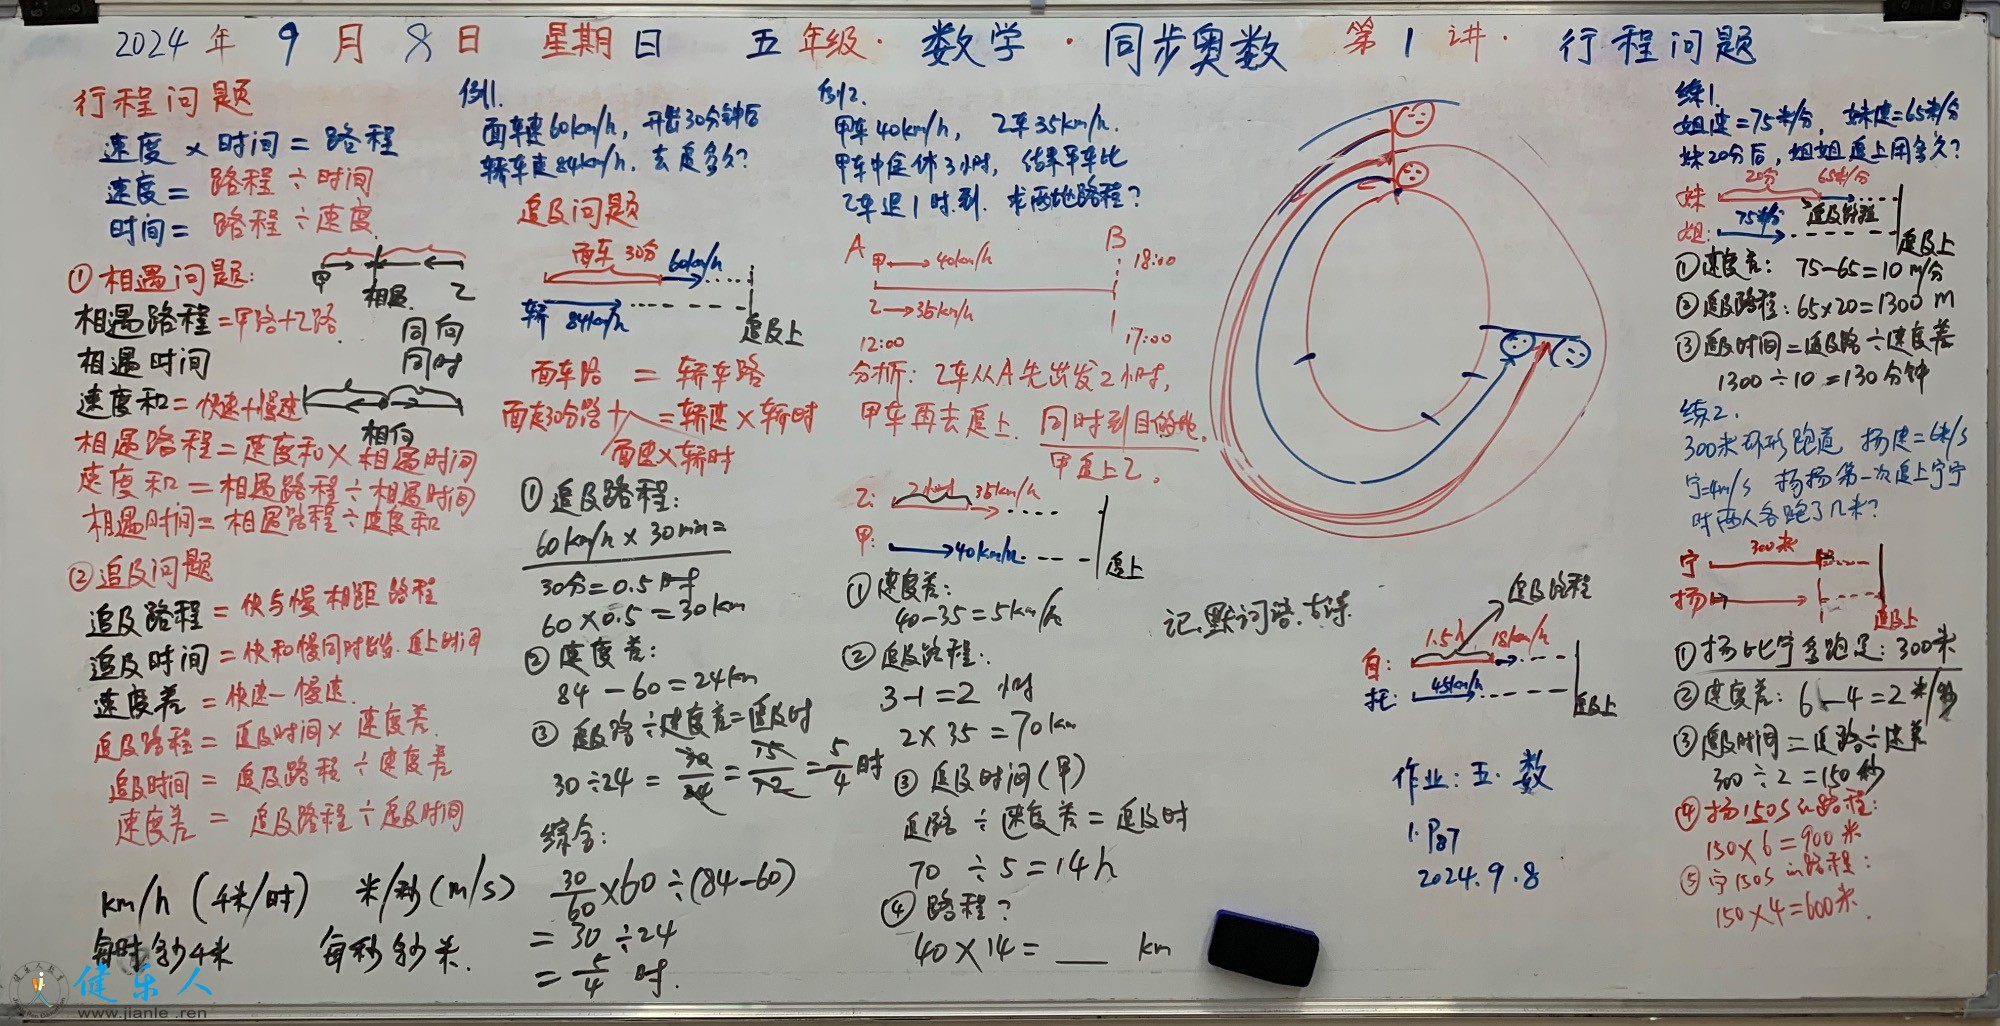 2024年 9月 8日 星期日 五年级·数学·同步奥数 第1讲·行程问题
行程问题
速度×时间=路程
速度=路程÷时间
时间=路程÷速度
①相遇问题:
甲
相遇
乙
相遇路程=甲路+乙路
同向
相遇时间
同时
速度和=快速+慢速
相向
相遇路程=速度和×相遇时间
速度和=相遇路程÷相遇时间
相遇时间=相遇路程÷速度和
②追及问题
追及路程=快与慢相距路程
追及时间=快和慢同时出发.追上时间
速度差=快速-慢速.
追及路程=追及时间×速度差.
追及时间=追及路程÷速度差
速度差=追及路程÷追及时间
km/h (千米/时) 米/秒(m/s)
每时多少千米 每秒多少米.
例1.
面车速60km/h, 开出30分钟后
轿车速84km/h. 去追多久?
追及问题
面车 30分 60km/h
轿 84km/h
追及上
面车路 = 轿车路
面走30分路+ =轿速×轿时
面速×轿时
①追及路程:
60km/h×30min=
30分=0.5时
60×0.5=30km
②速度差:
84-60=24km
③追及路÷速度差=追及时
30÷24=30/24=15/12=5/4时
综合:
30/60×60÷(84-60)
=30÷24
=5/4时.
例2.
甲车40km/h, 乙车35km/h.
甲车中途休3小时, 结果甲车比
乙车迟1时到. 求两地路程?
A 甲 40km/h B 18:00
乙 35km/h
12:00 17:00
分析: 乙车从A先出发2小时,
甲车再去追上. 同时到目的地.
甲追上乙.
乙: 2小时 35km/h
甲: 40km/h
追上
①速度差:
40-35=5km/h
②追及路程:
3-1=2 小时
2×35=70km
③追及时间(甲)
追路÷速度差=追及时
70÷5=14h
④路程?
40×14=___ km
追及路程
自: 1.5h 18km/h
托: 45km/h
追及上
作业: 五.数
1.P87
2024.9.8
练1.
姐速=75米/分, 妹速=65米/分
妹20分后, 姐姐追上用多久?
20分 65米/分
妹
75米/分 追及路程
姐:
追及上
①速度差: 75-65=10m/分
②追及路程: 65×20=1300m
③追及时间=追及路÷速度差
1300÷10=130分钟
练2.
300米环形跑道 扬速=6米/s
宁=4m/s 扬扬第一次追上宁宁
时两人各跑了几米?
宁 300米
扬
追及上
①扬比宁多跑足: 300米
②速度差: 6-4=2米/秒
③追及时间=追路÷速差
300÷2=150秒
④扬150S的路程:
150×6=900米
⑤宁150S的路程:
150×4=600米.
健乐人
www.jianle.ren